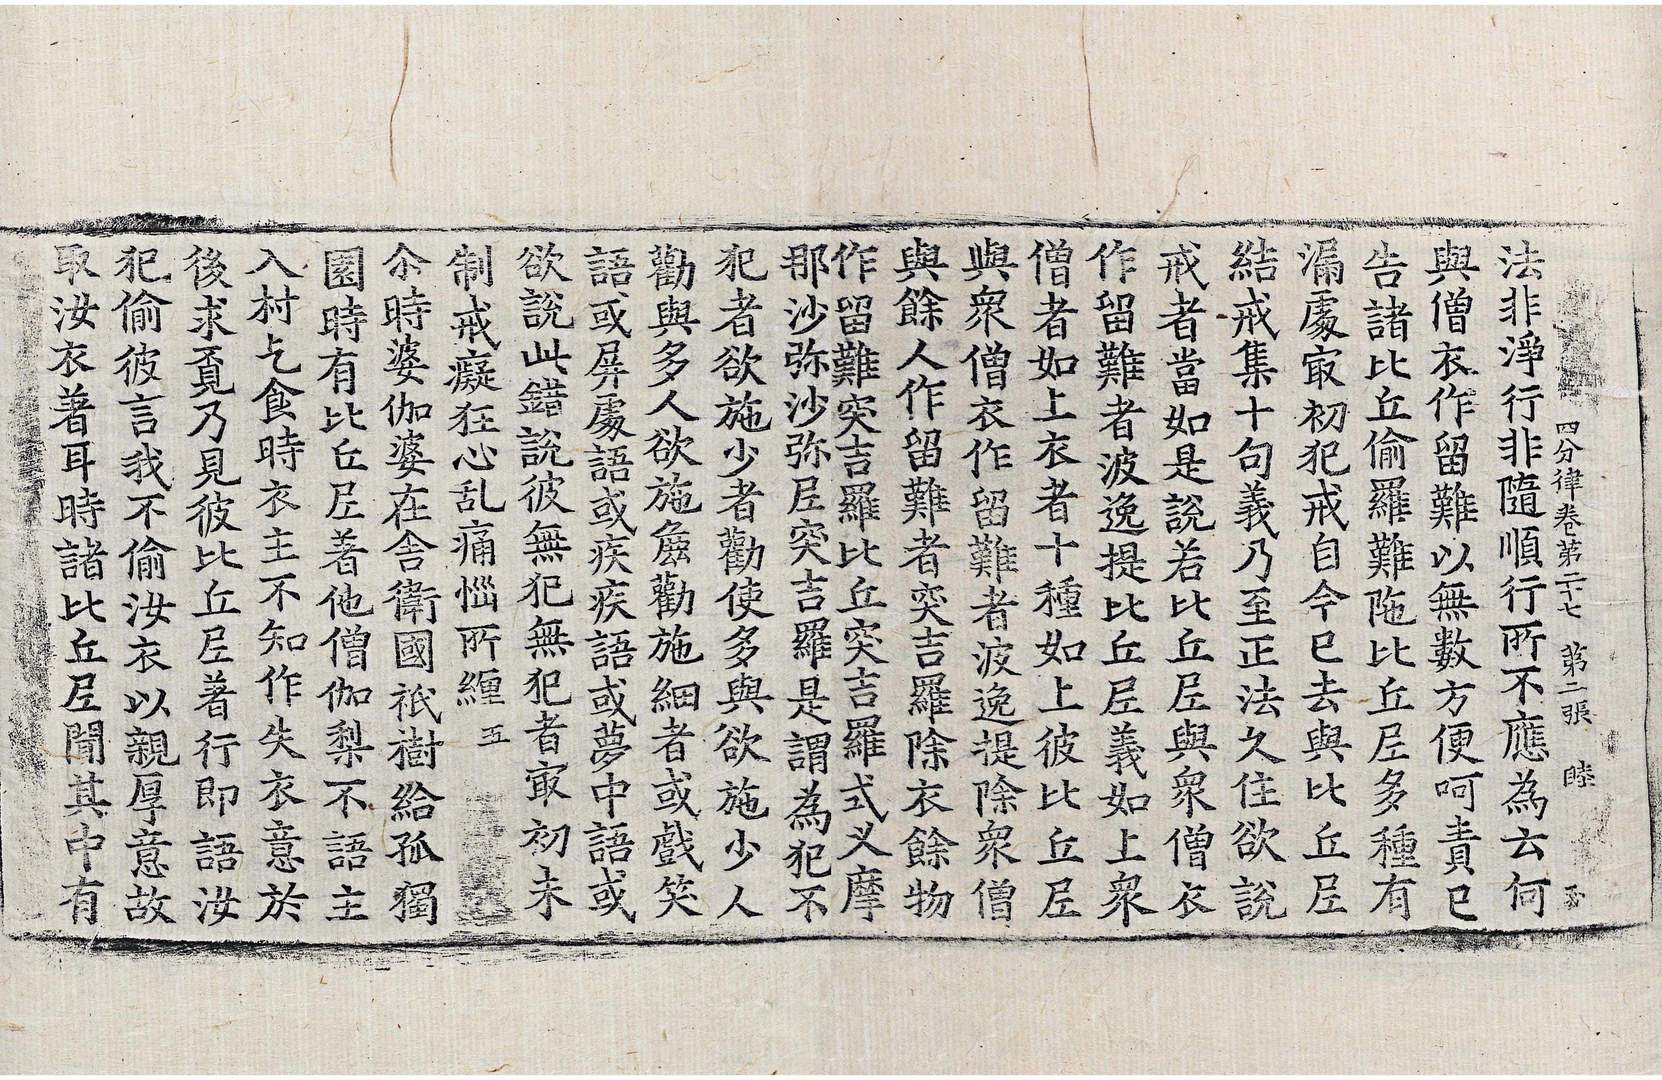 四分律卷第二十七　第二張　睦
法非淨行非隨順行所不應為云何
與僧衣作留難以無數方便呵責已
告諸比丘偷羅難陁比丘尼多種有
漏處冣初犯戒自今已去與比丘尼
結戒集十句義乃至正法久住欲說
戒者當如是說若比丘尼與衆僧衣
作留難者波逸提比丘尼義如上衆
僧者如上衣者十種如上彼比丘尼
與衆僧衣作留難者波逸提除衆僧
與餘人作留難者突吉羅除衣餘物
作留難突吉羅比丘突吉羅式叉摩
那沙弥沙弥尼突吉羅是謂為犯不
犯者欲施少者勸使多與欲施少人
勸與多人欲施麁勸施細者或戲笑
語或屏處語或疾疾語或夢中語或
欲說此錯說彼無犯無犯者冣初未
制戒癡狂心乱痛惱所纏　五
尒時婆伽婆在舍衛國祇樹給孤獨
園時有比丘尼著他僧伽梨不語主
入村乞食時衣主不知作失衣意於
後求覔乃見彼比丘尼著行即語汝
犯偷彼言我不偷汝衣以親厚意故
取汝衣著耳時諸比丘尼聞其中有